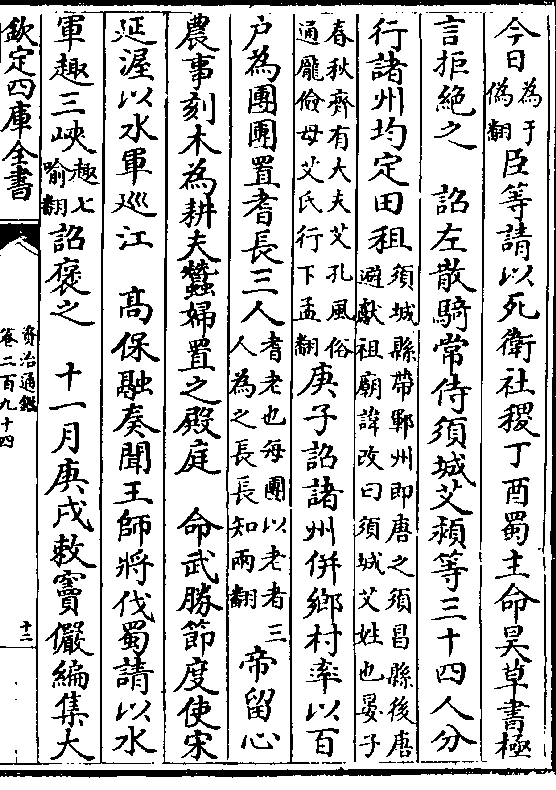 今日為于偽翻臣等請以死衛社稷丁酉蜀主命昊草書極
言拒絶之　詔左散騎常侍須城艾穎等三十四人分
行諸州均定田租須城縣帶鄆州即唐之須昌縣後唐避獻祖廟諱改曰須城艾姓也晏子
春秋齊有大夫艾孔風俗通龐儉母艾氏行下孟翻庚子詔諸州併鄉村率以百
户為團團置耆長三人耆老也每團以老者三人為之長長知兩翻帝留心
農事刻木為耕夫蠶婦置之殿庭　命武勝節度使宋
延渥以水軍巡江　高保融奏聞王師將伐蜀請以水
軍趣三峽趣七喻翻詔褒之　十一月庚戌敕竇儼編集大
欽定四庫全書
資治通鑑
卷二百九十四
十二